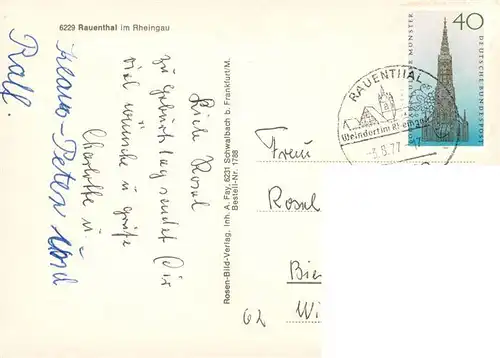 6229 Rauenthal im Rheingau
Liebe Rosel
zu Geburtstag sendet Dir
viel wünsche u. grüße
Charlotte u.
Klaus-Peter und
Ralf.
Rosen-Bild-Verlag, Inh. A. Fay, 6231 Schwalbach b. Frankfurt/M.
Bestell-Nr. 1788
40
DEUTSCHE BUNDESPOST
MÜNSTER
RAUENTHAL
Weindorf im Rheingau
8.77
17
Frau
Rosel
Bie
62 Wi